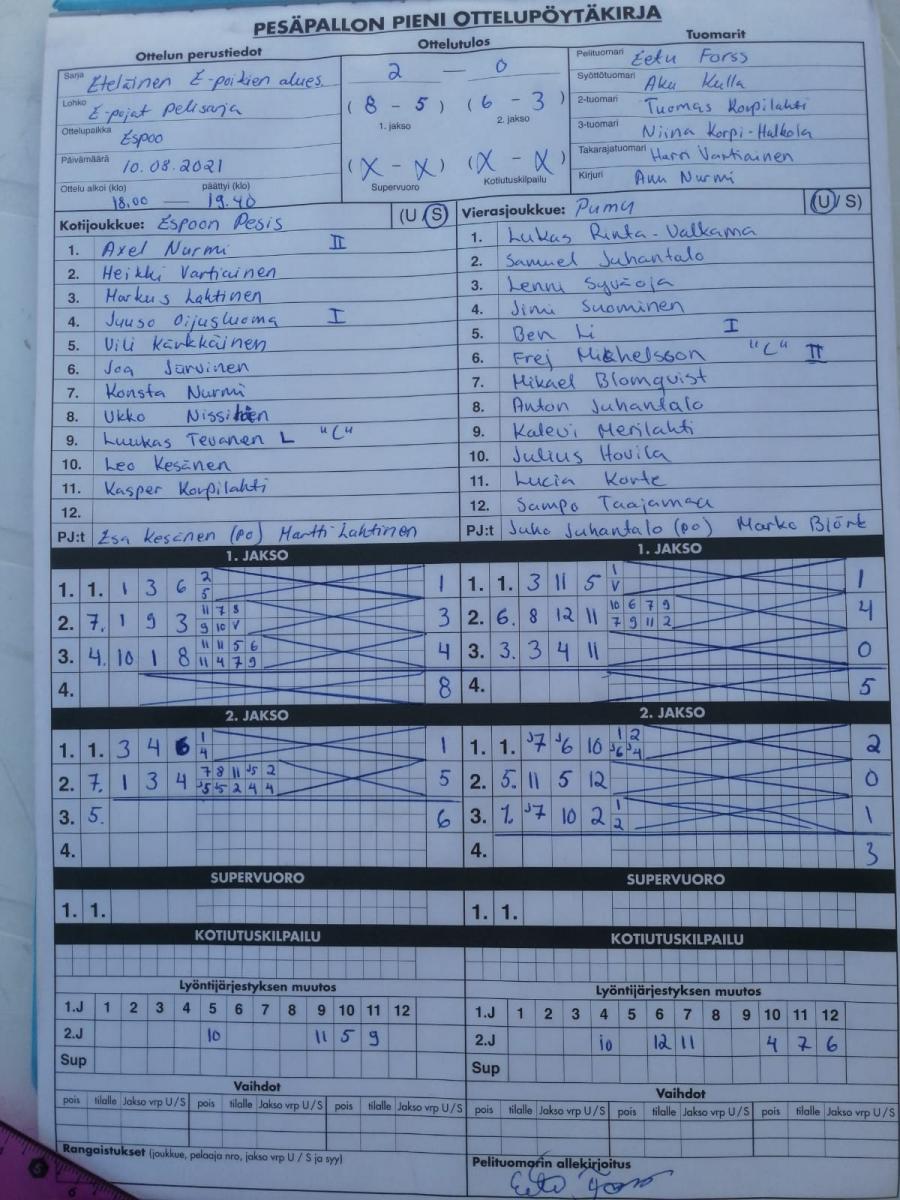 PESÄPALLON PIENI OTTELUPÖYTÄKIRJA
Ottelun perustiedot
Sarja Eteläinen E-poikien alues.
Lohko E-pojat pelisarja
Ottelupaikka Espoo
Päivämäärä 10.08.2021
Ottelu alkoi (klo) päättyi (klo)
18.00 — 19.40
Ottelutulos
2 — 0
(8 - 5) (6 - 3)
1. jakso 2. jakso
(X - X) (X - X)
Supervuoro Kotiutuskilpailu
Tuomarit
Pelituomari Eetu Forss
Syöttötuomari Aku Kulla
2-tuomari Tuomas Korpilahti
3-tuomari Niina Korpi-Halkola
Takarajatuomari Harri Vartiainen
Kirjuri Anu Nurmi
Kotijoukkue: Espoon Pesis (U S)
1. Axel Nurmi II
2. Heikki Vartiainen
3. Markus Lahtinen
4. Juuso Oijusluoma I
5. Vili Kärkkäinen
6. Joa Järvinen
7. Konsta Nurmi
8. Ukko Nissinen
9. Luukas Tevanen L "C"
10. Leo Kesänen
11. Kasper Korpilahti
12.
PJ:t Esa Kesänen (po) Martti Lahtinen
Vierasjoukkue: Pumu (U/S)
1. Lukas Rinta-Valkama
2. Samuel Juhantalo
3. Lenni Syväoja
4. Jimi Suominen
5. Ben Li I
6. Frej Mickelsson "C" II
7. Mikael Blomquist
8. Anton Juhantalo
9. Kalevi Merilahti
10. Julius Hovila
11. Lucia Korte
12. Sampo Taajamaa
PJ:t Juho Juhantalo (po) Marko Björk
1. JAKSO
1. 1. 1 3 6 2 1
5
2. 7. 1 9 3 11 7 8 3
9 10 V
3. 4. 10 1 8 11 11 5 6 4
11 4 7 9
4. 8
1. JAKSO
1. 1. 3 11 5 1 1
V
2. 6. 8 12 11 10 6 7 9 4
7 9 11 2
3. 3. 3 4 11 0
4. 5
2. JAKSO
1. 1. 3 4 6 1 1
4
2. 7. 1 3 4 7 8 11 J5 2 5
J5 J5 2 4 4
3. 5. 6
4.
2. JAKSO
1. 1. J7 J6 10 1 2 2
J6 J4
2. 5. 11 5 12 0
3. 1. J7 10 2 1 1
2
4. 3
SUPERVUORO
1. 1.
SUPERVUORO
1. 1.
KOTIUTUSKILPAILU
KOTIUTUSKILPAILU
Lyöntijärjestyksen muutos
1.J 1 2 3 4 5 6 7 8 9 10 11 12
2.J 10 11 5 9
Sup
Lyöntijärjestyksen muutos
1.J 1 2 3 4 5 6 7 8 9 10 11 12
2.J 10 12 11 4 7 6
Sup
Vaihdot
pois tilalle Jakso vrp U/S pois tilalle Jakso vrp U/S pois tilalle Jakso vrp U/S
Vaihdot
pois tilalle Jakso vrp U/S pois tilalle Jakso vrp U/S pois tilalle Jakso vrp U/S
Rangaistukset (joukkue, pelaaja nro, jakso vrp U / S ja syy)
Pelituomarin allekirjoitus
Eetu Forss